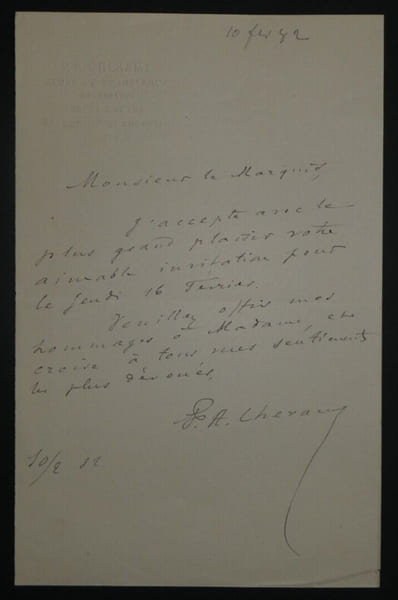 10 fev 82
P. A. CHERAMY
Monsieur le Marquis,
J'accepte avec le
plus grand plaisir votre
aimable invitation pour
le Jeudi 16 Février.
Veuillez offrir mes
hommages à Madame, et
croire à tous mes sentiments
les plus dévoués.
P. A. Cheramy
10/2 82